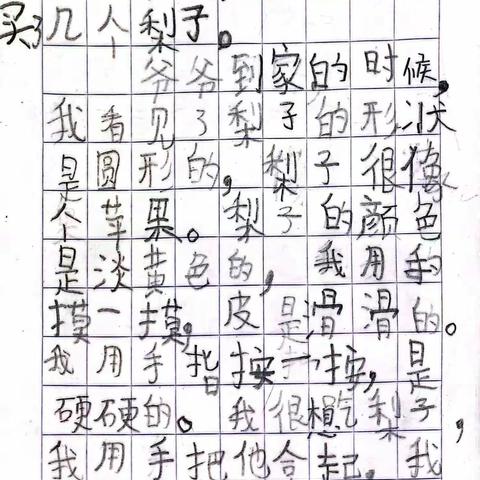 买了几个梨子。
爷爷到家的时候,
我看见了梨子的形状
是圆形的,梨子很像
个苹果。梨子的颜色
是淡黄色的,我用手
摸一摸,皮是滑滑的。
我用手指按一按,是
硬硬的。我很想吃梨子,
我用手把他合起。我